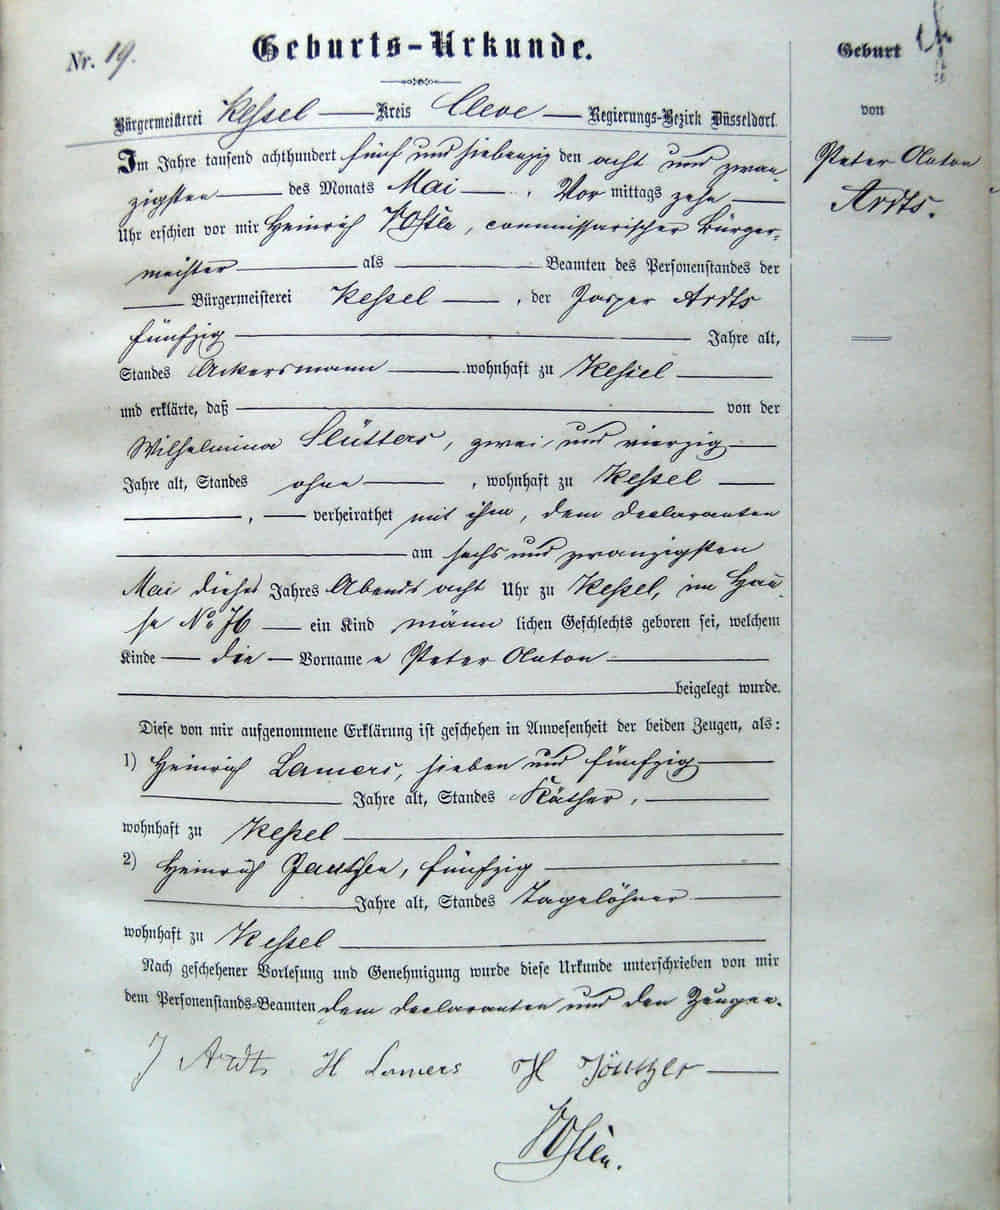 Nr. 19.
Geburts-Urkunde.
Bürgermeisterei Kessel Kreis Cleve Regierungs-Bezirk Düsseldorf
Im Jahre tausend achthundert fünf und siebenzig den acht und zwan-
zigsten des Monats Mai, Vor mittags zehn
Uhr erschien vor mir Heinrich, commissarischer Bürger-
meister als Beamten des Personenstandes der
Bürgermeisterei Kessel, der Jasper Ardts
fünfzig Jahre alt,
Standes Ackersmann wohnhaft zu Kessel
und erklärte, daß von der
Wilhelmina Slütters, zwei und vierzig
Jahre alt, Standes ohne, wohnhaft zu Kessel
, verheirathet mit ihm, dem Declaranten
am sechs und zwanzigsten
Mai dieses Jahres Abends acht Uhr zu Kessel, im Hau-
se No 76 ein Kind männ lichen Geschlechts geboren sei, welchem
Kinde die Vorname n Peter Anton
beigelegt wurde.
Diese von mir aufgenommene Erklärung ist geschehen in Anwesenheit der beiden Zeugen, als:
1) Heinrich Lamers, sieben und fünfzig
Jahre alt, Standes Käther,
wohnhaft zu Kessel
2) Heinrich, fünfzig
Jahre alt, Standes Tagelöhner
wohnhaft zu Kessel
Nach geschehener Vorlesung und Genehmigung wurde diese Urkunde unterschrieben von mir
dem Personenstands-Beamten dem Declaranten und den Zeugen.
J Ardts H Lamers H
Geburt
von
Peter Anton
Ardts.